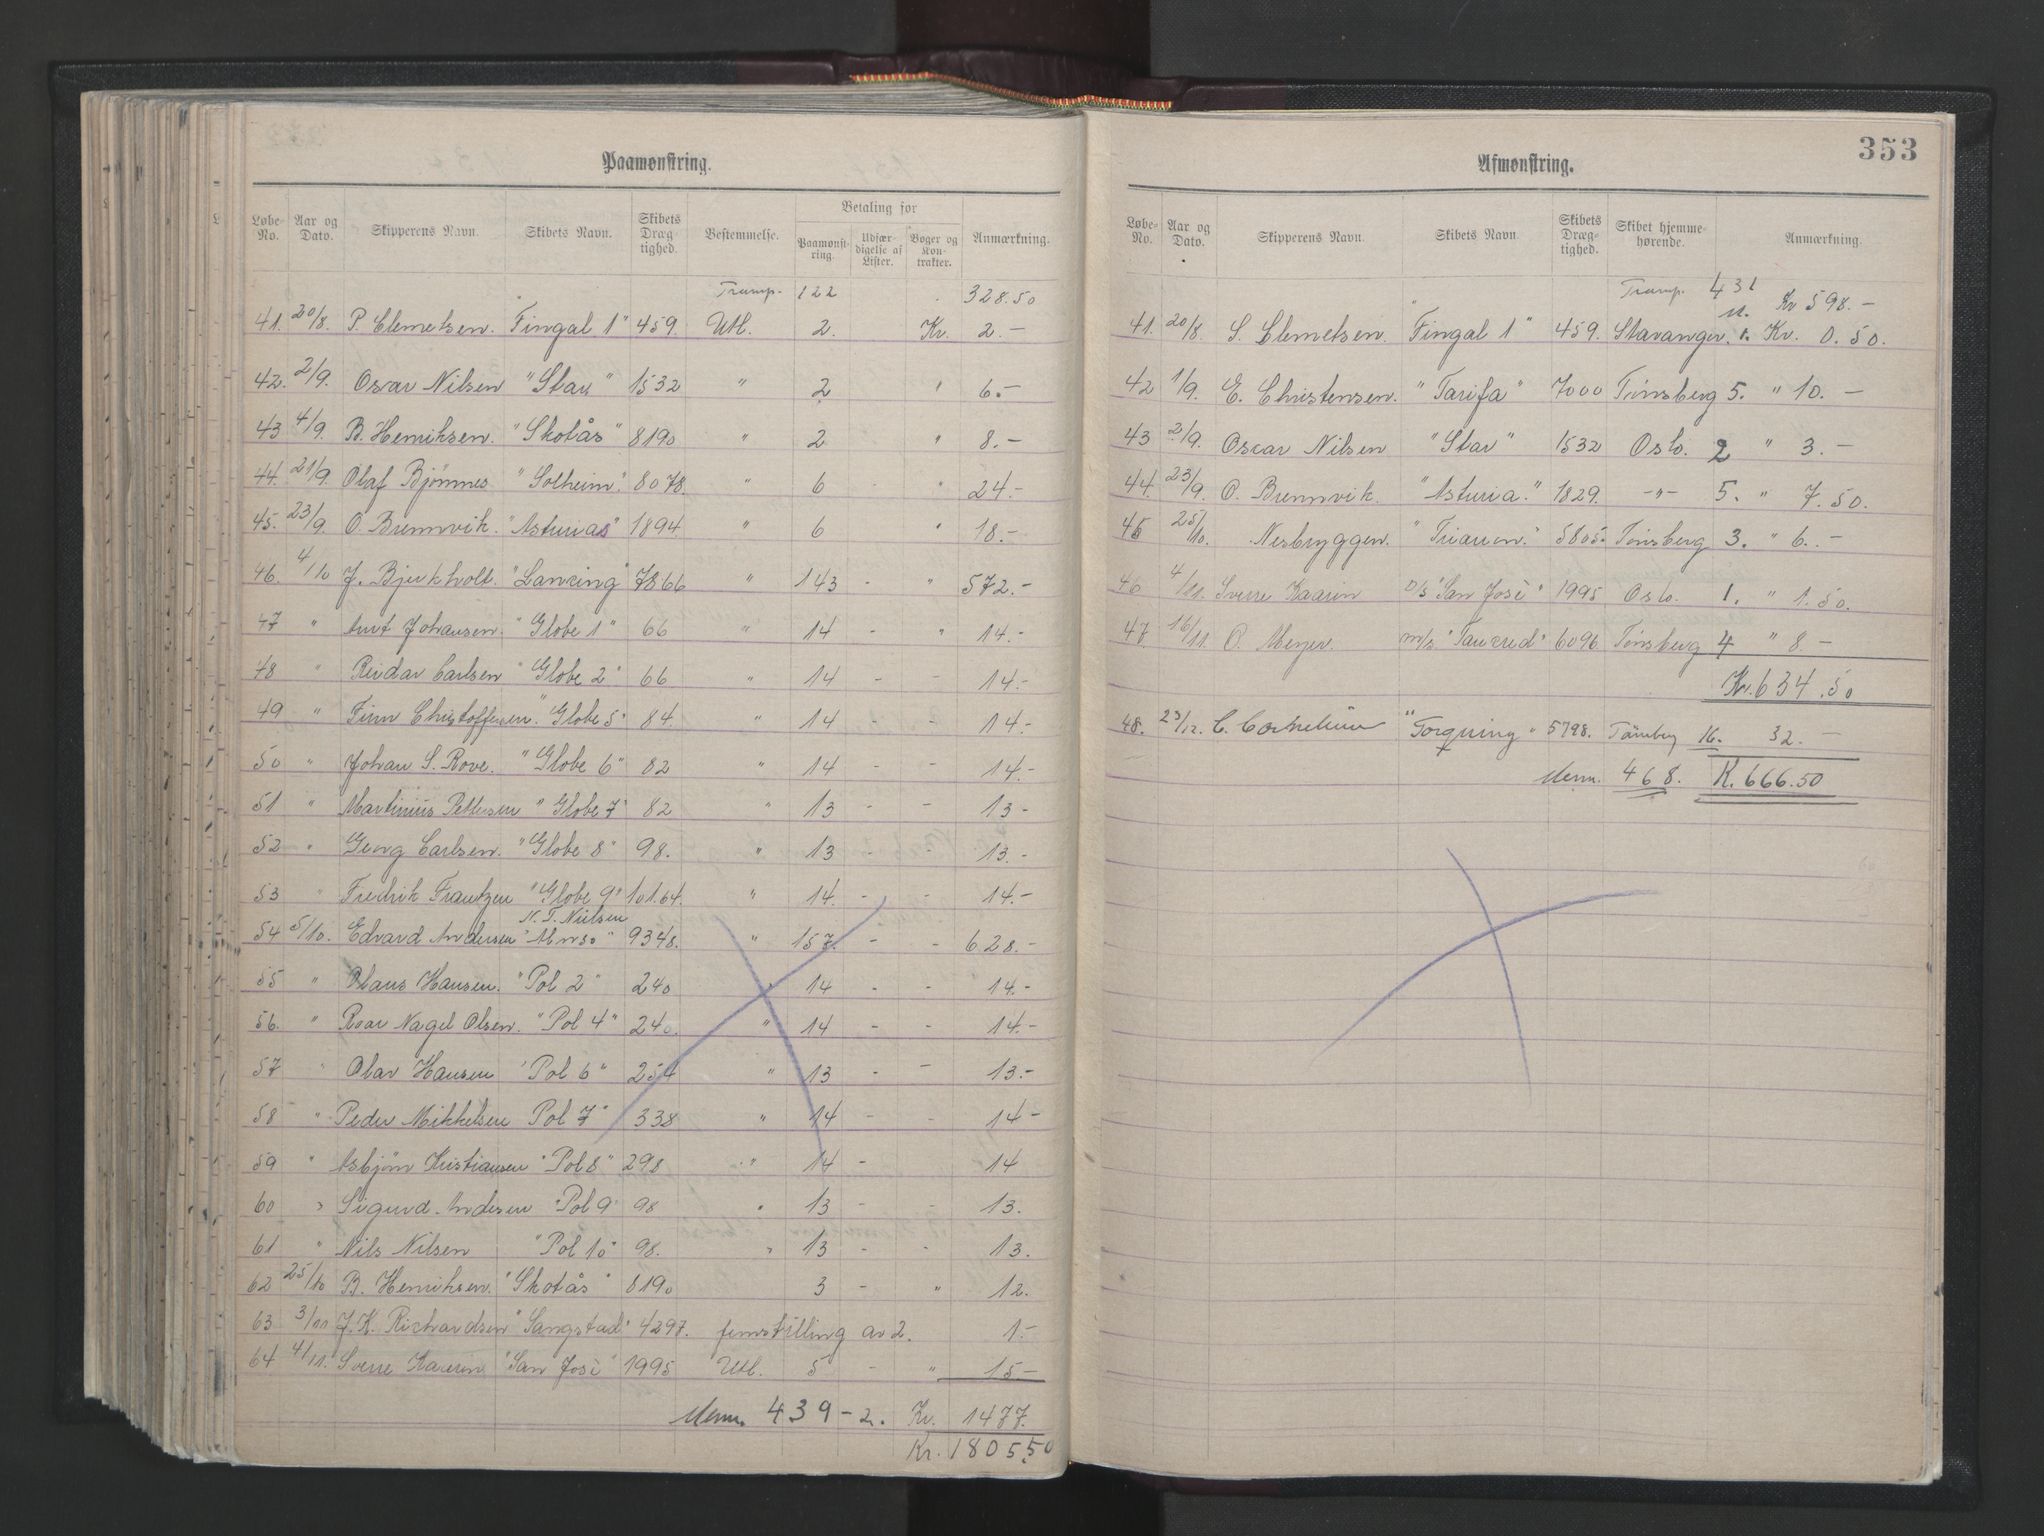 353
Paamønstring.
Løbe-No. Aar og Dato. Skipperens Navn. Skibets Navn. Skibets Dræg-tighed. Bestemmelse. Betaling for Paamønst-ring. Udfær-digelse af Lister. Bøger og Kon-trakter. Anmærkning.
Transp. 122 328.50
41. 20/8. P. Clemetsen. "Fingal 1" 459. Utl. 2. Kr. 2.-
42. 2/9. Oscar Nilsen "Star" 1532 " 2 " 6.-
43 4/9. B. Henriksen. "Skotås" 8190 " 2 " 8.-
44. 21/9. Olaf Bjønnes "Solheim". 8078. " 6 - " 24.-
45. 23/9. O. Brennvik. "Asturias" 1894 " 6 " 18.-
46. 4/10 J. Bjerkholt. "Lancing" 7866 " 143 - " 572.-
47 " Johansen. "Globe 1" 66 " 14 - " 14.-
48 " Reidar Carlsen "Globe 2" 66 " 14 - - 14.-
49 " Finn Christoffersen. "Globe 5" 84. " 14 - - 14.-
50 " Johan S. Rove. "Globe 6" 82 " 14 - - 14.-
51 " Martinius Pettersen "Globe 7" 82 " 13 - - 13-
52 " Georg Carlsen. "Globe 8" 98. " 13 - - 13.-
53 " Fredrik Frantzen "Globe 9" 101.64. " 14. - - 14.-
54 5/10. Edvard Andersen "N. T. Nielsen Alonso" 9348. " 157. - - 628.-
55 " Olaus Hansen. "Pol 2" 240 " 14 - - 14.-
56. " Roar Nagel Olsen. "Pol 4" 240. " 14 - - 14.-
57 " Olav Hansen "Pol 6" 254 " 13 - - 13.-
58 " Peder Mikkelsen Pol 7" 338 " 14 - - 14-
59 " Asbjørn Kristiansen "Pol 8" 298 " 14 - 14
60 " Sigurd Andersen "Pol 9" 98 " 13 - - 13.
61 " Nils Nilsen "Pol 10" 98. " 13 - - 13.
62 25/10 B. Henriksen. "Skotås" 8190 3 - " 12.
63 3/11 J. K. Richardsen "Sangstad" 4297. av 2. 1-
64 4/11. Sverre Kaarin "San José" 1995 Utl. 5 - " 15-
Menn. 439-2. Kr. 1477.
Kr. 1805.50
Afmønstring.
Løbe-No. Aar og Dato. Skipperens Navn. Skibets Navn Skibets Dræg-tighed. Skibet hjemme-hørende. Anmærkning.
Transp. 431 Kr 598.-
41. 20/8. S. Clemetsen. "Fingal 1" 459. Stavanger. 1. Kr. 0.50.
42 1/9. E. Christensen. "Tarifa" 7000 Tønsberg 5. " 10.-
43 2/9. Oscar Nilsen "Star" 1532 Oslo. 2 " 3.-
44. 23/9. O. Brennvik. "Asturia." 1829. -"- 5. " 7.50.
45 25/10. Nesbryggen. "Triamon." 5805. Tønsberg 3. " 6.-
46 4/11. Sverre Kaarin D/S "San José" 1995 Oslo. 1. " 1.50.
47. 16/11. O. Meyer. m/s "Tancred" 6096 Tønsberg 4 " 8-
Kr. 634.50
48. 23/12. C. Cornelius "Torquing" 5798. Tönsberg 16. 32.-
Menn. 468. K. 666.50